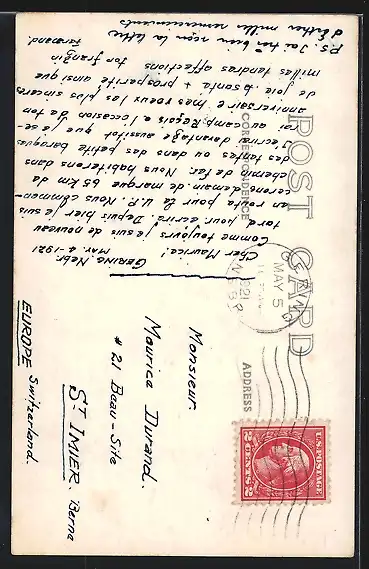 POST CARD
CORRESPONDENCE
ADDRESS
P.S. J'ai très bien reçu la lettre
d'Esther mille remerciements
GERING. Nebr.
Mar. 4-1921
Cher Maurice!
Comme toujours je suis de nouveau
tard pour écrire. Depuis hier je suis
en route pour le U.P. Nous commen-
cerons demain de marquer 65 km de
chemin de fer. Nous habiterons dans
des tentes ou dans des petites baraques
J'écrirai davantage aussitôt que je se-
rai au camp. Reçois a l'occasion de ton
anniversaire mes voeux les plus sincères
de joie, santé & prosperité ainsi que
milles tendres affections ton frangin
Fernand.
GERING
MAY 5
1921
NEBR.
Monsieur
Maurice Durand.
# 21 Beau-Site
ST IMIER. Berne
EUROPE Switzerland.
U.S. POSTAGE
2 CENTS 2